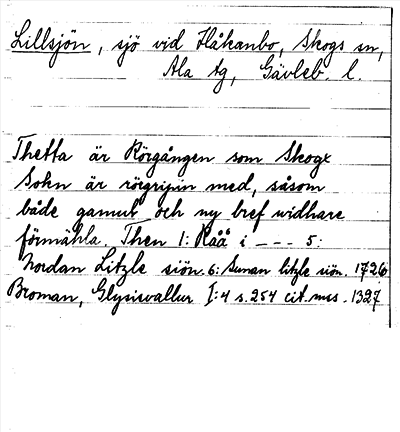 Lillsjön, sjö vid Håkanbo, Skogs sn,
Ala tg, Gävleb. l.
Thetta är Rörgången som Skogx
Sokn är rörgripin med, såsom
både gamut och ny bref widhare
förmähla. Then 1: Råå i - - - 5:
Nordan Litzle siön. 6: Sunan litzle siön. 1726
Broman, Glysisvallur I:4 s. 254 cit. mss. 1327